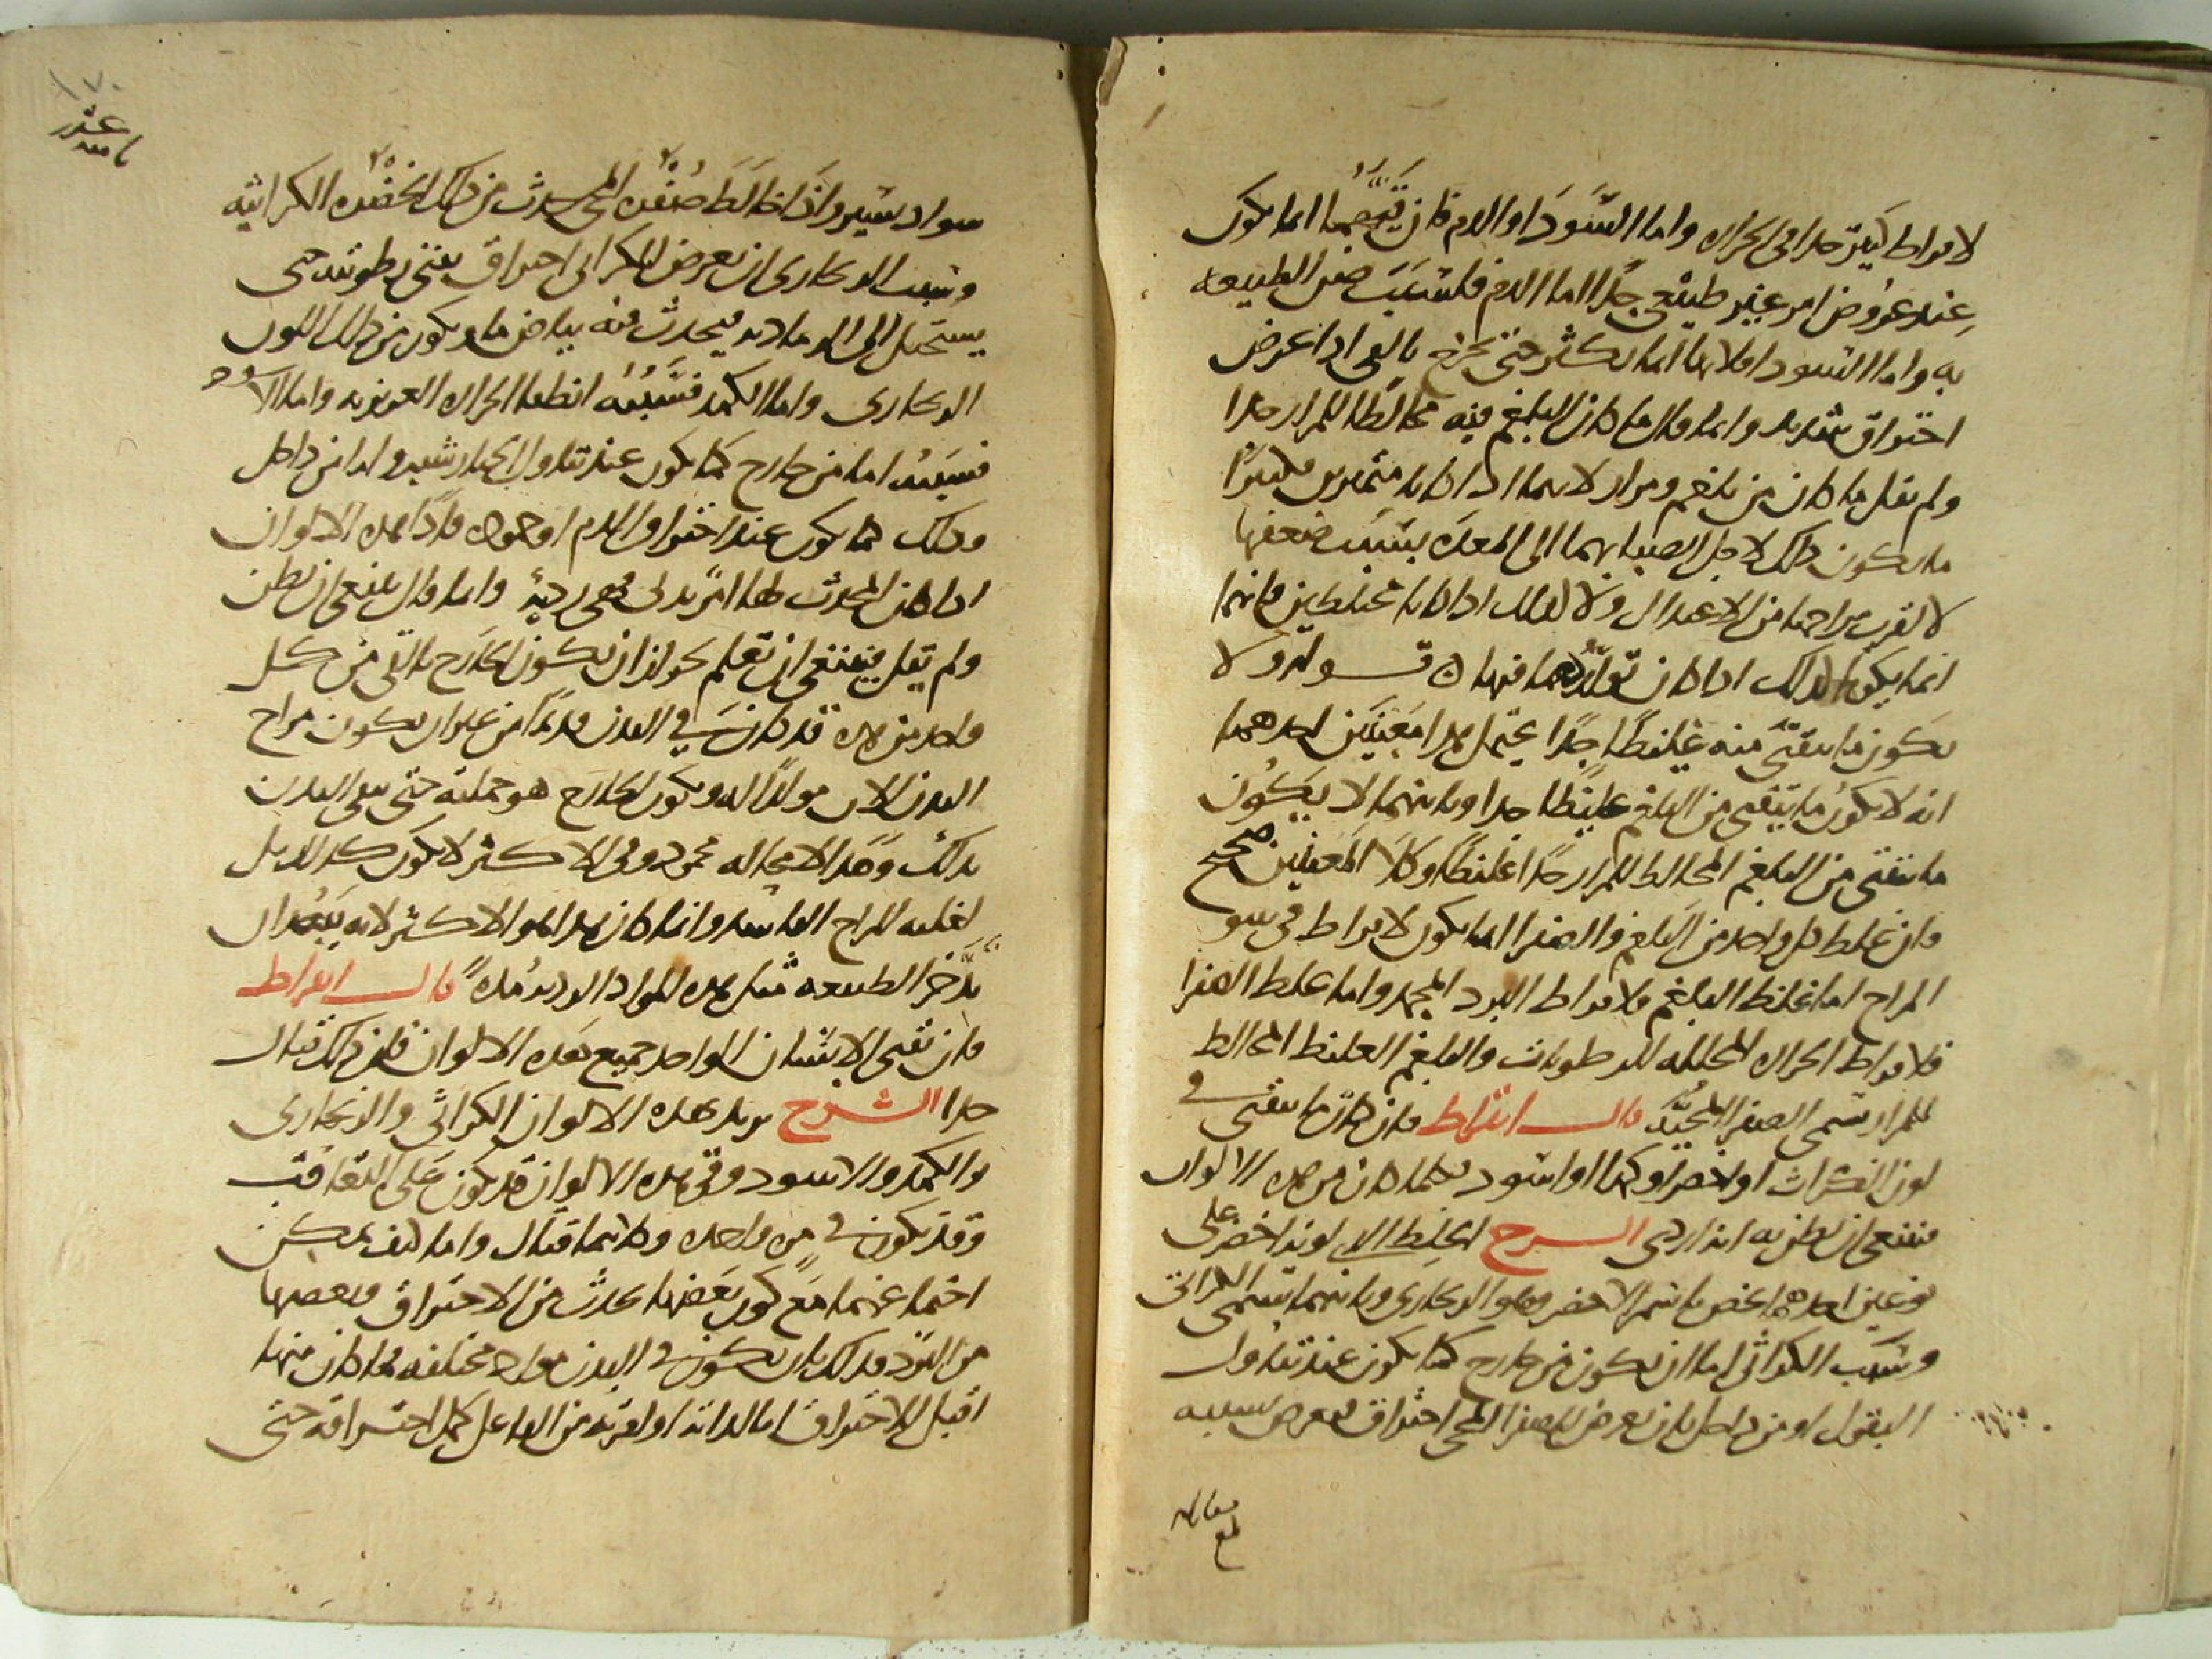 لافراط كثيرة جدا فى الحرارة واما السَّوْدَا والدم فان قيهما انما يكون
عِند عرُوض امر غير طبيعي جدًا اما الدم فلسَبَب ضن الطبيعة
به واما السودا فلانها انما تكثر حتى تخرج بالقى اذا عرض
احتراق شديد وانما قال ما كان البلغم فيه مخالطًا للمرار جدا
ولم يقل ما كان من بلغم ومرار لانهما اذا كانا متميزين فكثيرًا
ما يكون ذلك لاجل انصبابهما الى المعدة بسَبَب ضعفها
لا لقرب مزاجهما من الاعتدال ولا كذلك اذا كانا مختلطين فانهما
انما يكونا كذلك اذا كان تولّدُهما فيها ۞ قــوله ولا
يكون ما يتقيّى منه غليظًا جدًا يحتمل هذا معنيَين احدهما
انه لا يكون ما يتقيى من البلغم غليظًا جدا وثانيهما لا يكُون
ما يتقيى من البلغم المخالط للمرار جدًا غليظًا وكلا المعنيين صحيح
فان غلظ كل واحد من البلغم والصفرا انما يكون لافراط فى سو
المزاج اما غلظ البلغم فلافراط البرد المجمد واما غلظ الصفرا
فلافراط الحرارة المحللة للرطوبات والبلغم الغليظ المخالط
للمرار يسمى الصفرا المحيّة قالــ ابقراط فان كان ما يتقيى فى
لون الكراث او اخضر او كمدا او اسود فكلما كان من هذه الالوان
فينبغي ان يظن به انه اردى الشــرح الخلط الذي لونه اخضر على
نوعين احدهما يخص باسم الاخضر وهو الزنجارى وثانيهما يسمى الكراثى
وسَبَب الكراثى اما ان يكون من خارج كما يكون عند تناول
البقول او من داخل بان يعرض للصفرا المحى احتراق فيعرض بسببه
مقابلة
بلغ
١٧٠
عشر
ثامنه
سواد يسير واذا خالَطَ صُفْرة المحى حدث من ذلك الخضرة الكراثية
وسبب الزنجارى ان يعرض للكراثى احتراق يفنى رطوبته حتى
يستحيل الى الرمادية فيحدث منه بياض ما ويكون من ذلك اللون
الزنجارى واما الكمد فسَبَبُه انطفا الحرارة الغريزية واما الاسود
فسَبَبُه اما من خارج كما يكون عند تناول الخيارشنبر واما من داخل
وذلك كما يكون عند احتراق الدم او جموده فاذًا هذه الالوان
اذا كان المحدث لها امر بدنى فهى ردية وانما قال ينبغى ان يظن
ولم يقل فينبغى ان تعلم لجواز ان يكون الخارج بالقى من كل
واحد من هذه قد كان فى البدن قديمًا من غير ان يكون مزاج
البدن الان مولدًا له ويكون الخارج هو جملته حتى ينقى البدن
بذلك وهَذا لا محالة محمود وفى الاكثر لا يكون كذلك بل
لغلبة المزاج الفاسد وانما كان هذا هو الاكثر لانه يَبْعُد ان
تدَّخر الطبيعة مثل هذه المواد الردية مُدة ۞ قالــ ابقراط
فان تقيى الانسَان الواحد جميع هَذه الالوان فان ذلك قتالــ
جدا الشــرح يريد بهذه الالوان الكراثى والزنجارى
والكمد والاسود وقى هذه الالوان قد يكون على التعاقب
وقد يكون فى مرة واحدة وكلاهما قتال واما كيف يمكن
اجتماعهما مَع كون بَعضها يحدث من الاحتراق وبعضها
من البرد فذلك بان يكون فى البدن مواد مختلفة فما كان منها
اقبل للاحتراق اما لذاته او لقربه من الفاعل كمل احتراقه حتى